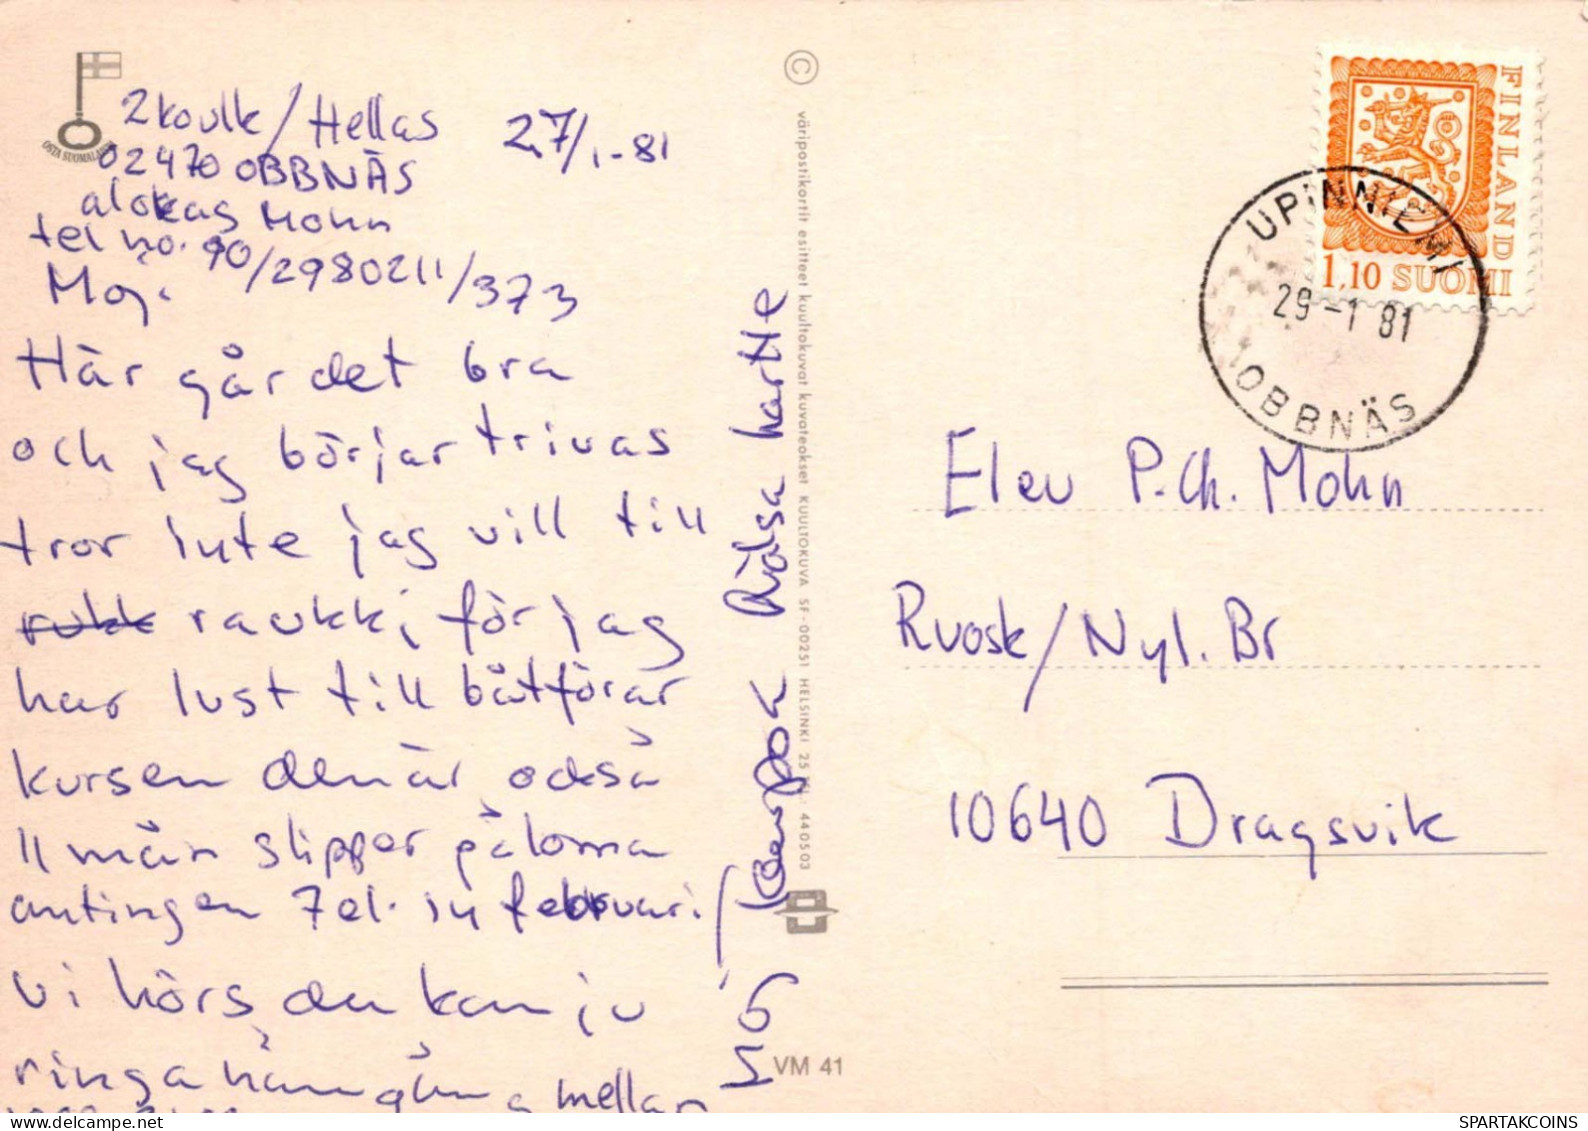 2koulk/Hellas 27/1-81
02470 OBBNÄS
alokas Mohn
tel no. 90/2980211/373
Moj.
Här går det bra
och jag börjar trivas
tror inte jag vill till
raukki för jag
har lust till båtförar
kursen den är också
11 mån slipper på loma
antingen 7 el. 14 februari/
vi hörs, du kan ju
ringa hän gång mellan
Hälsa
OSTA SUOMALAISTA
© väripostikortit esitteet kuultokuvat kuvateokset KUULTOKUVA SF-00251 HELSINKI 25 440503
VM 41
FINLAND
1,10 SUOMI
UPINNIEMI
29-1 81
OBBNÄS
Elev P.Ch. Mohn
Ruosk/Nyl. Br
10640 Dragsvik
SPARTAKCOINS